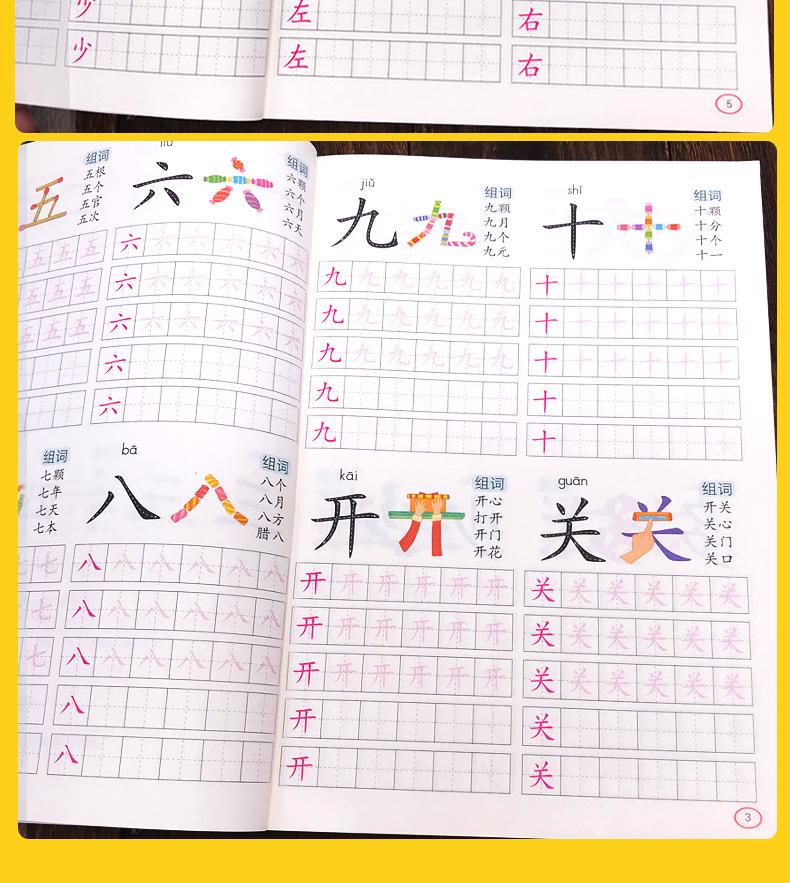 少
左
右
少
左
右
5
五
组词
五根
五个
五官
五次
liù
六
组词
六颗
六个
六月
六天
五 五 五
五 五 五
五 五 五
六 六 六 六 六 六
六 六 六 六 六 六
六 六 六 六 六 六
六
六
组词
七颗
七年
七天
七本
bā
八
八
组词
八个
八月
八方
腊八
七 七
七 七
七 七
八 八 八 八 八 八
八 八 八 八 八 八
八 八 八 八 八 八
八
八
jiǔ
九
九
组词
九颗
九月
九个
九元
shí
十
十
组词
十颗
十分
十个
十一
九 九 九 九 九 九
九 九 九 九 九 九
九 九 九 九 九 九
九
九
十 十 十 十 十 十
十 十 十 十 十 十
十 十 十 十 十 十
十
十
kāi
开
开
组词
开心
打开
开门
开花
guān
关
关
组词
开关
关心
关门
关口
开 开 开 开 开 开
开 开 开 开 开 开
开 开 开 开 开 开
开
开
关 关 关 关 关 关
关 关 关 关 关 关
关 关 关 关 关 关
关
关
3